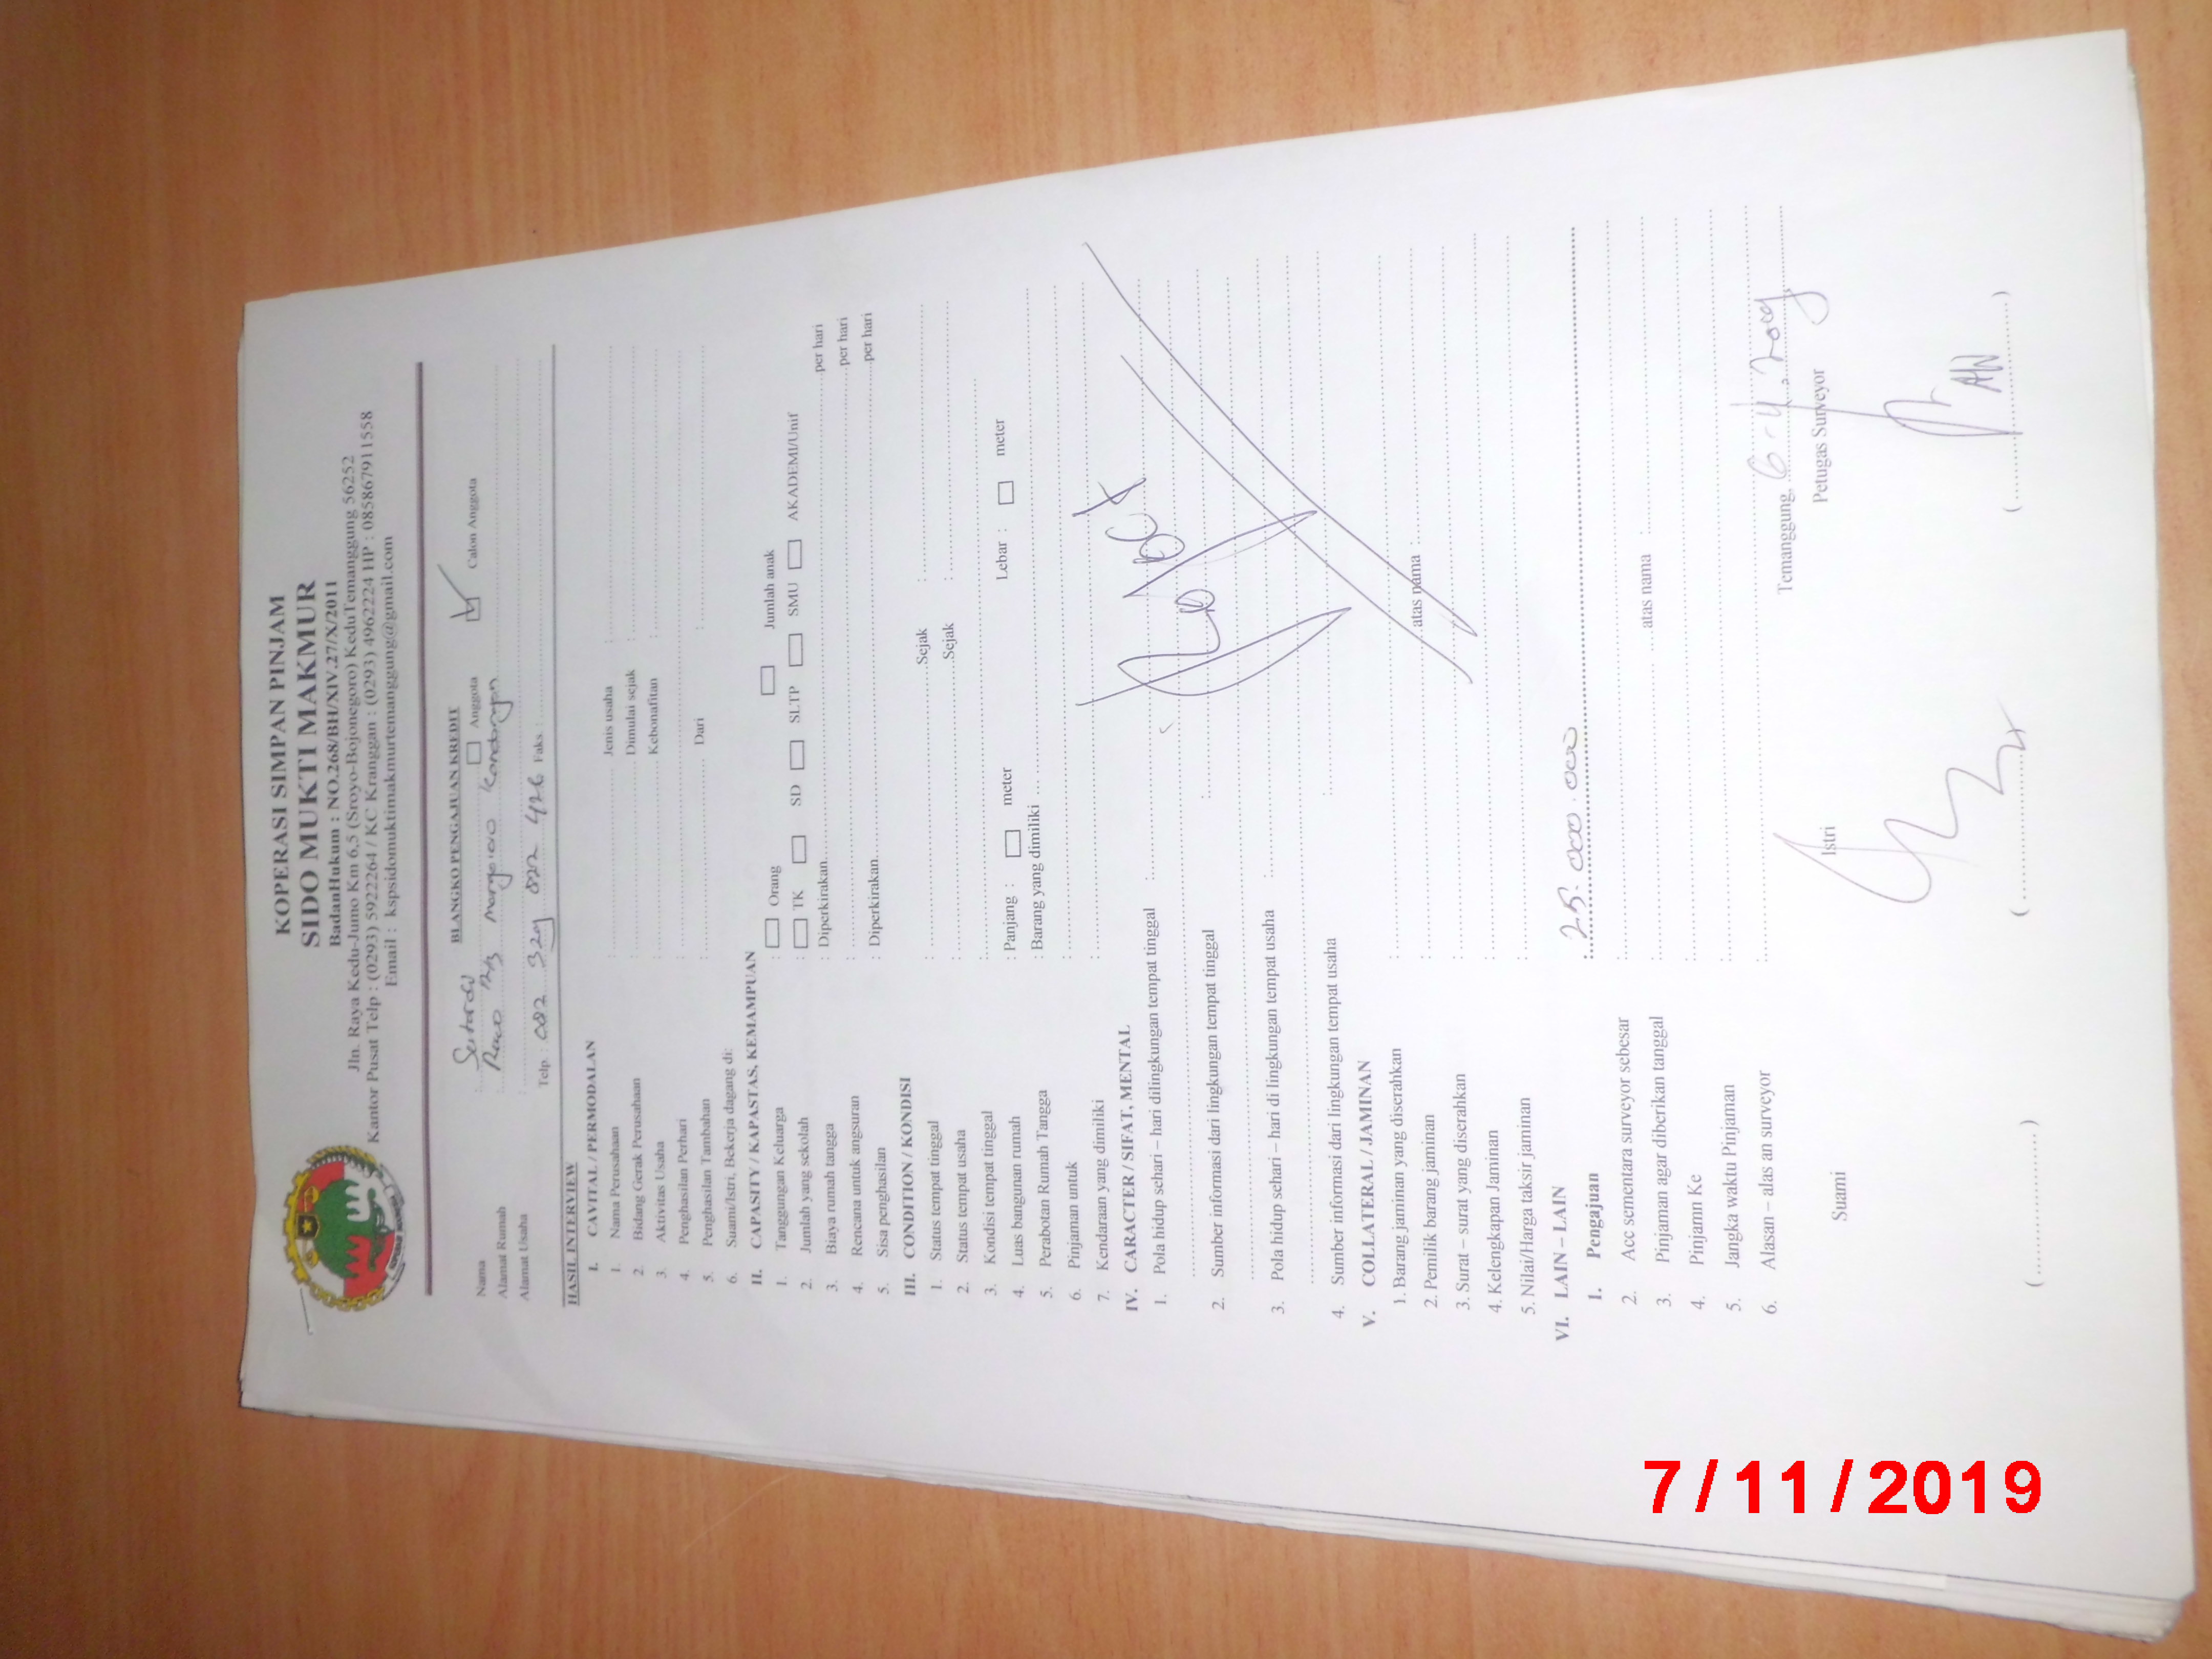 KOPERASI SIMPAN PINJAM
SIDO MUKTI MAKMUR
BadanHukum : NO.268/BH/XIV.27/X/2011
Jln. Raya Kedu-Jumo Km 6,5 (Sroyo-Bojonegoro) KeduTemanggung 56252
Kantor Pusat Telp : (0293) 5922264 / KC Kranggan : (0293) 4962224 HP : 085867911558
Email : kspsidomuktimakmurtemanggung@gmail.com
BLANGKO PENGAJUAN KREDIT
Nama : Anggota Calon Anggota
Alamat Rumah : Kandangan
Alamat Usaha :
Telp. : 082 329 082 426 Faks. :
HASIL INTERVIEW
I. CAVITAL / PERMODALAN
1. Nama Perusahaan : Jenis usaha :
2. Bidang Gerak Perusahaan : Dimulai sejak :
3. Aktivitas Usaha : Kebonafitan :
4. Penghasilan Perhari :
5. Penghasilan Tambahan : Dari :
6. Suami/Istri, Bekerja dagang di:
II. CAPASITY / KAPASTAS, KEMAMPUAN
1. Tanggungan Keluarga : Orang Jumlah anak
2. Jumlah yang sekolah : TK SD SLTP SMU AKADEMI/Unif
3. Biaya rumah tangga : Diperkirakan per hari
4. Rencana untuk angsuran : per hari
5. Sisa penghasilan : Diperkirakan per hari
III. CONDITION / KONDISI
1. Status tempat tinggal : Sejak :
2. Status tempat usaha : Sejak :
3. Kondisi tempat tinggal :
4. Luas bangunan rumah : Panjang : meter Lebar : meter
5. Perabotan Rumah Tangga : Barang yang dimiliki
6. Pinjaman untuk :
7. Kendaraan yang dimiliki :
IV. CARACTER / SIFAT, MENTAL
1. Pola hidup sehari – hari dilingkungan tempat tinggal :
2. Sumber informasi dari lingkungan tempat tinggal :
3. Pola hidup sehari – hari di lingkungan tempat usaha :
4. Sumber informasi dari lingkungan tempat usaha :
V. COLLATERAL / JAMINAN
1. Barang jaminan yang diserahkan :
2. Pemilik barang jaminan : atas nama :
3. Surat – surat yang diserahkan :
4. Kelengkapan Jaminan :
5. Nilai/Harga taksir jaminan :
VI. LAIN – LAIN
1. Pengajuan : 25.000.000
2. Acc sementara surveyor sebesar :
3. Pinjaman agar diberikan tanggal : atas nama :
4. Pinjamn Ke :
5. Jangka waktu Pinjaman :
6. Alasan – alas an surveyor :
Temanggung,
Suami Istri Petugas Surveyor
7/11/2019